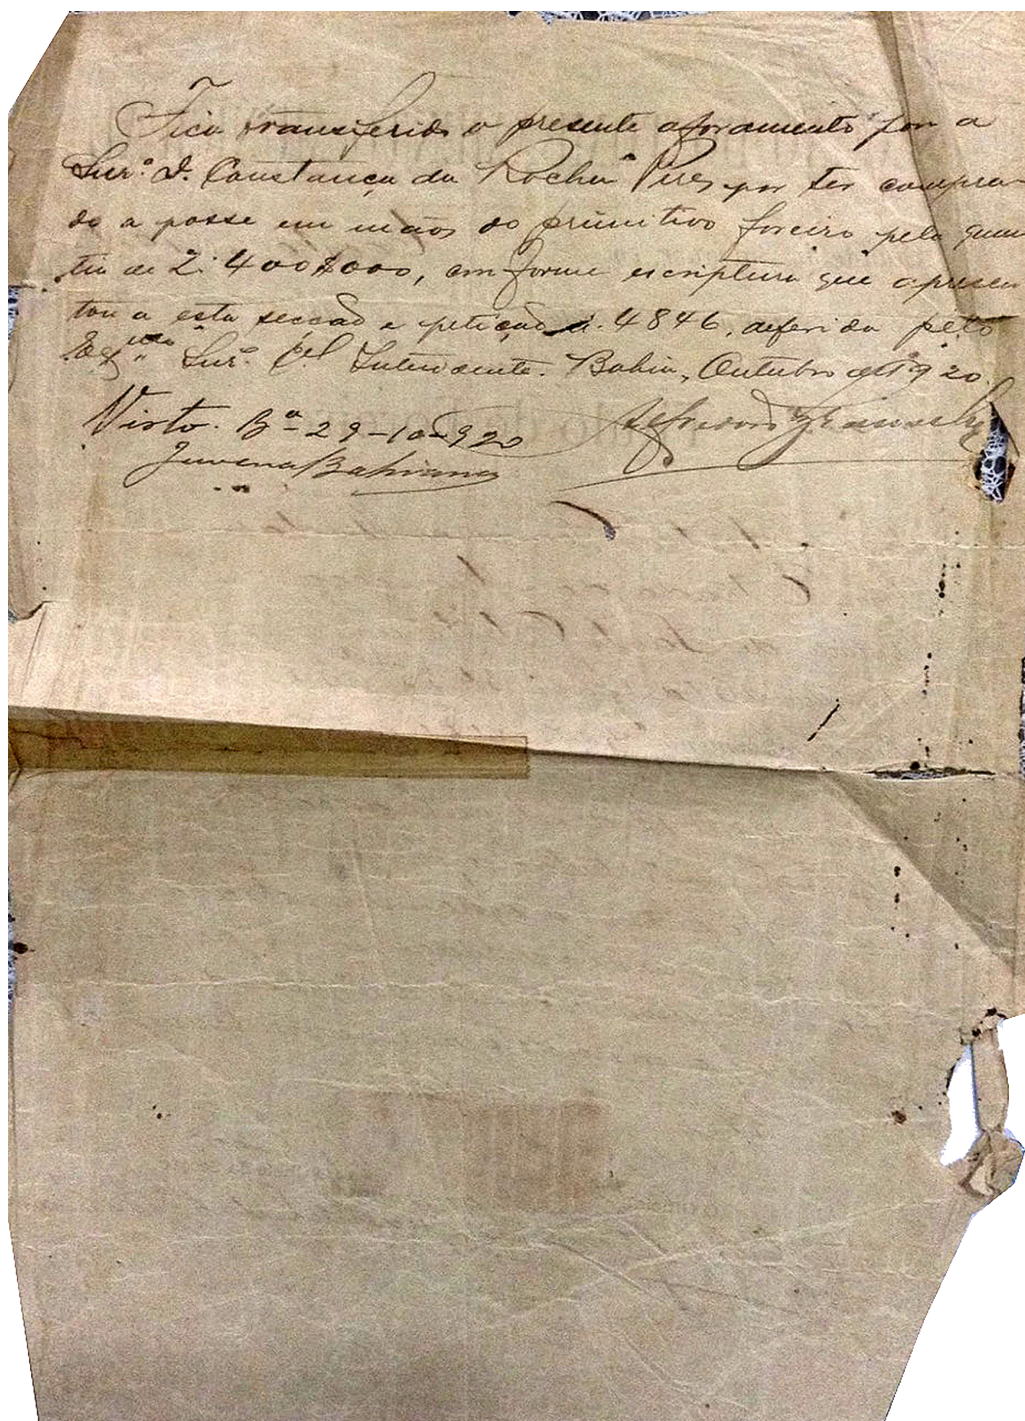 Fica transferido o presente aforamento para a
Snr.ª D. Constança da Rocha Pires por ter compra-
do a posse em mãos do primitivo foreiro pela quan-
tia de 2:400$000, conforme escriptura que apresen
tou a esta secção e petição n. 4846, deferida pelo
Ex.mo Snr. Cel. Intendente. Bahia, Outubro de 1920.
Visto. Bª 29-10-920 Alfredo
Juvena Bahiana